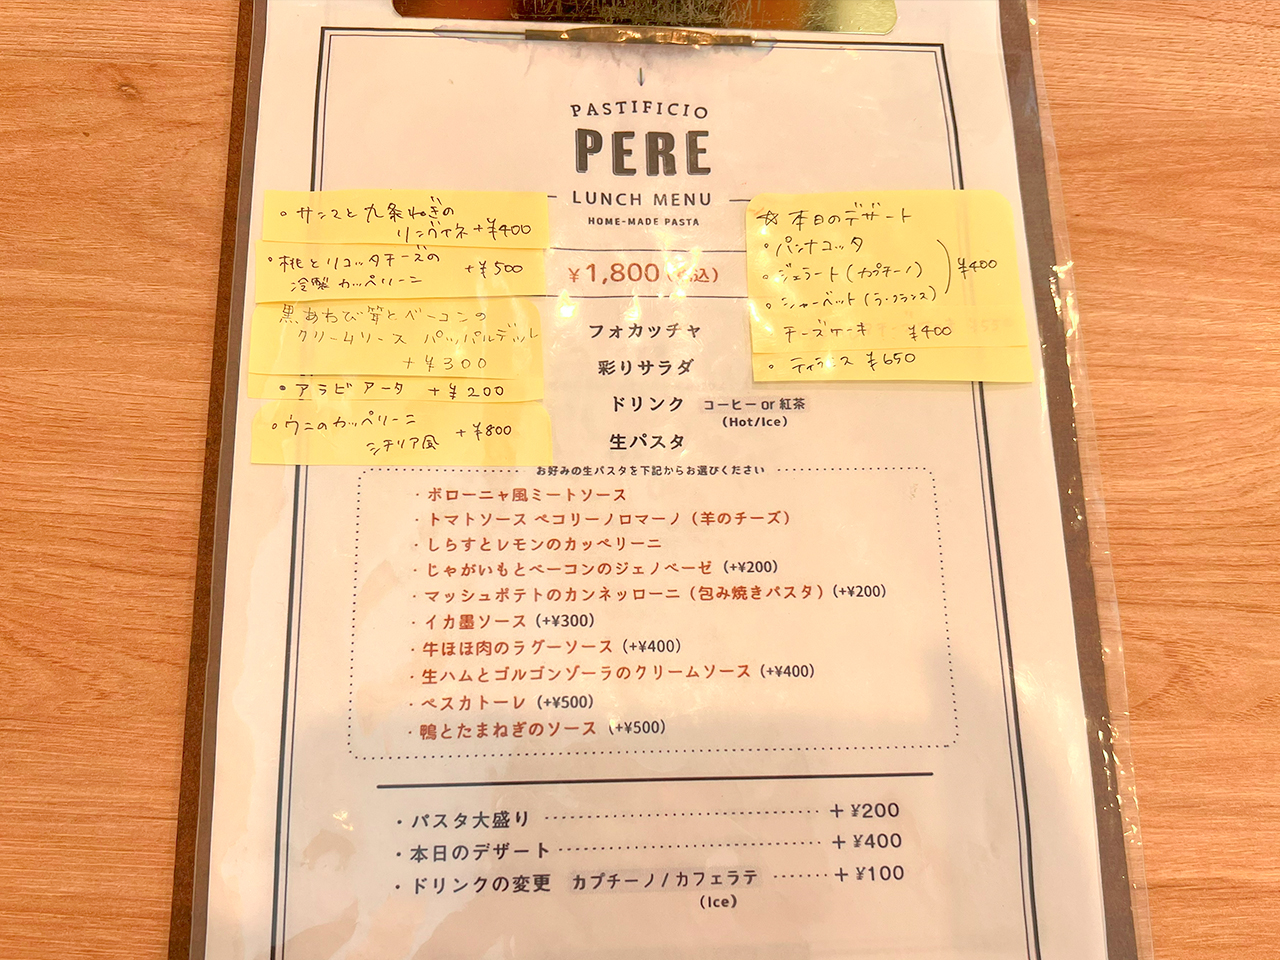 PASTIFICIO
PERE
LUNCH MENU
HOME-MADE PASTA
¥1,800
フォカッチャ
彩りサラダ
ドリンク コーヒー or 紅茶
(Hot/Ice)
生パスタ
お好みの生パスタを下記からお選びください
・ボローニャ風ミートソース
・トマトソース ペコリーノロマーノ（羊のチーズ）
・しらすとレモンのカッペリーニ
・じゃがいもとベーコンのジェノベーゼ（+¥200）
・マッシュポテトのカンネッローニ（包み焼きパスタ）（+¥200）
・イカ墨ソース（+¥300）
・牛ほほ肉のラグーソース（+¥400）
・生ハムとゴルゴンゾーラのクリームソース（+¥400）
・ペスカトーレ（+¥500）
・鴨とたまねぎのソース（+¥500）
・パスタ大盛り ････････ + ¥200
・本日のデザート ････････ + ¥400
・ドリンクの変更 カプチーノ / カフェラテ ････ + ¥100
(Ice)
・サンスと九条ねぎの
リングイネ +¥400
・桃とリコッタチーズの
冷製カッペリーニ +¥500
黒あわび茸とベーコンの
クリームソース パッパルデッレ
+¥300
・アラビアータ +¥200
・ウニのカッペリーニ
シチリア風 +¥800
☆本日のデザート
・パンナコッタ
・ジェラート(カプチーノ) ¥400
・シャーベット(ラ・フランス)
チーズケーキ ¥400
・ティラミス ¥650